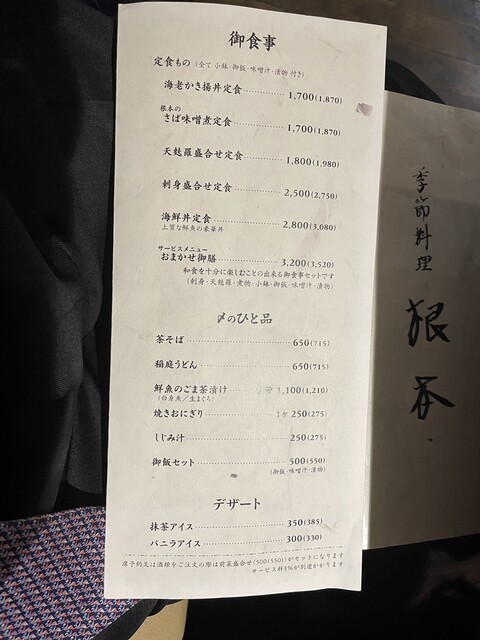 御食事
定食もの（全て 小鉢・御飯・味噌汁・漬物 付き）
海老かき揚丼定食 1,700(1,870)
根本の
さば味噌煮定食 1,700(1,870)
天麩羅盛合せ定食 1,800(1,980)
刺身盛合せ定食 2,500(2,750)
海鮮丼定食 2,800(3,080)
上質な鮮魚の豪華丼
サービスメニュー
おまかせ御膳 3,200(3,520)
和食を十分に楽しむことの出来る御食事セットです
（刺身・天麩羅・煮物・小鉢・御飯・味噌汁・漬物）
〆のひと品
茶そば 650(715)
稲庭うどん 650(715)
鮮魚のごま茶漬け 1,100(1,210)
（白身魚／生まぐろ）
焼きおにぎり 1ヶ 250(275)
しじみ汁 250(275)
御飯セット 500(550)
（御飯・味噌汁・漬物）
デザート
抹茶アイス 350(385)
バニラアイス 300(330)
席予約又は酒類をご注文の際は前菜盛合せ(500(550))がセットになります
サービス料3%が別途かかります
季節料理